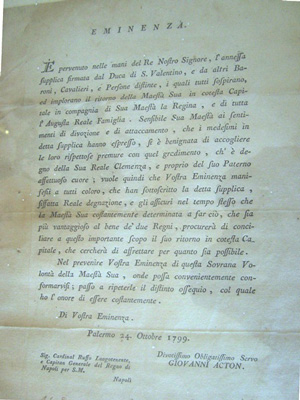 EMINENZA.
È pervenuto nelle mani del Re Nostro Signore, l'annessa
supplica firmata dal Duca di S. Valentino, e da altri Ba-
roni, Cavalieri, e Persone distinte, i quali tutti sospirano,
ed implorano il ritorno della Maestà Sua in cotesta Capi-
tale in compagnia di Sua Maestà la Regina, e di tutta
l'Augusta Reale Famiglia. Sensibile Sua Maestà ai senti-
menti di divozione e di attaccamento, che i medesimi in
detta supplica hanno espresso, si è benignata di accogliere
le loro rispettose premure con quel gradimento, ch'è de-
gno della Sua Reale Clemenza, e proprio del suo Paterno
affettuoso cuore; vuole quindi che Vostra Eminenza mani-
festi a tutti coloro, che han sottoscritto la detta supplica,
sissana Reale degnazione, e gli assicuri nel tempo stesso che
la Maestà Sua costantemente determinata a far ciò, che sia
più vantaggioso al bene de' due Regni, procurerà di conci-
liare a questo importante scopo il suo ritorno in cotesta Ca-
pitale, che cercherà di affrettare per quanto sia possibile.
Nel prevenire Vostra Eminenza di questa Sovrana Vo-
lontà della Maestà Sua, onde possa convenientemente con-
formarvisi; passo a ripeterle il distinto ossequio, col quale
ho l'onore di essere costantemente.
Di Vostra Eminenza.
Palermo 24. Ottobre 1799.
Sig. Cardinal Ruffo Luogotenente,
e Capitano Generale del Regno di
Napoli per S.M.
Napoli
Divotissimo Obligatissimo Servo
GIOVANNI ACTON.